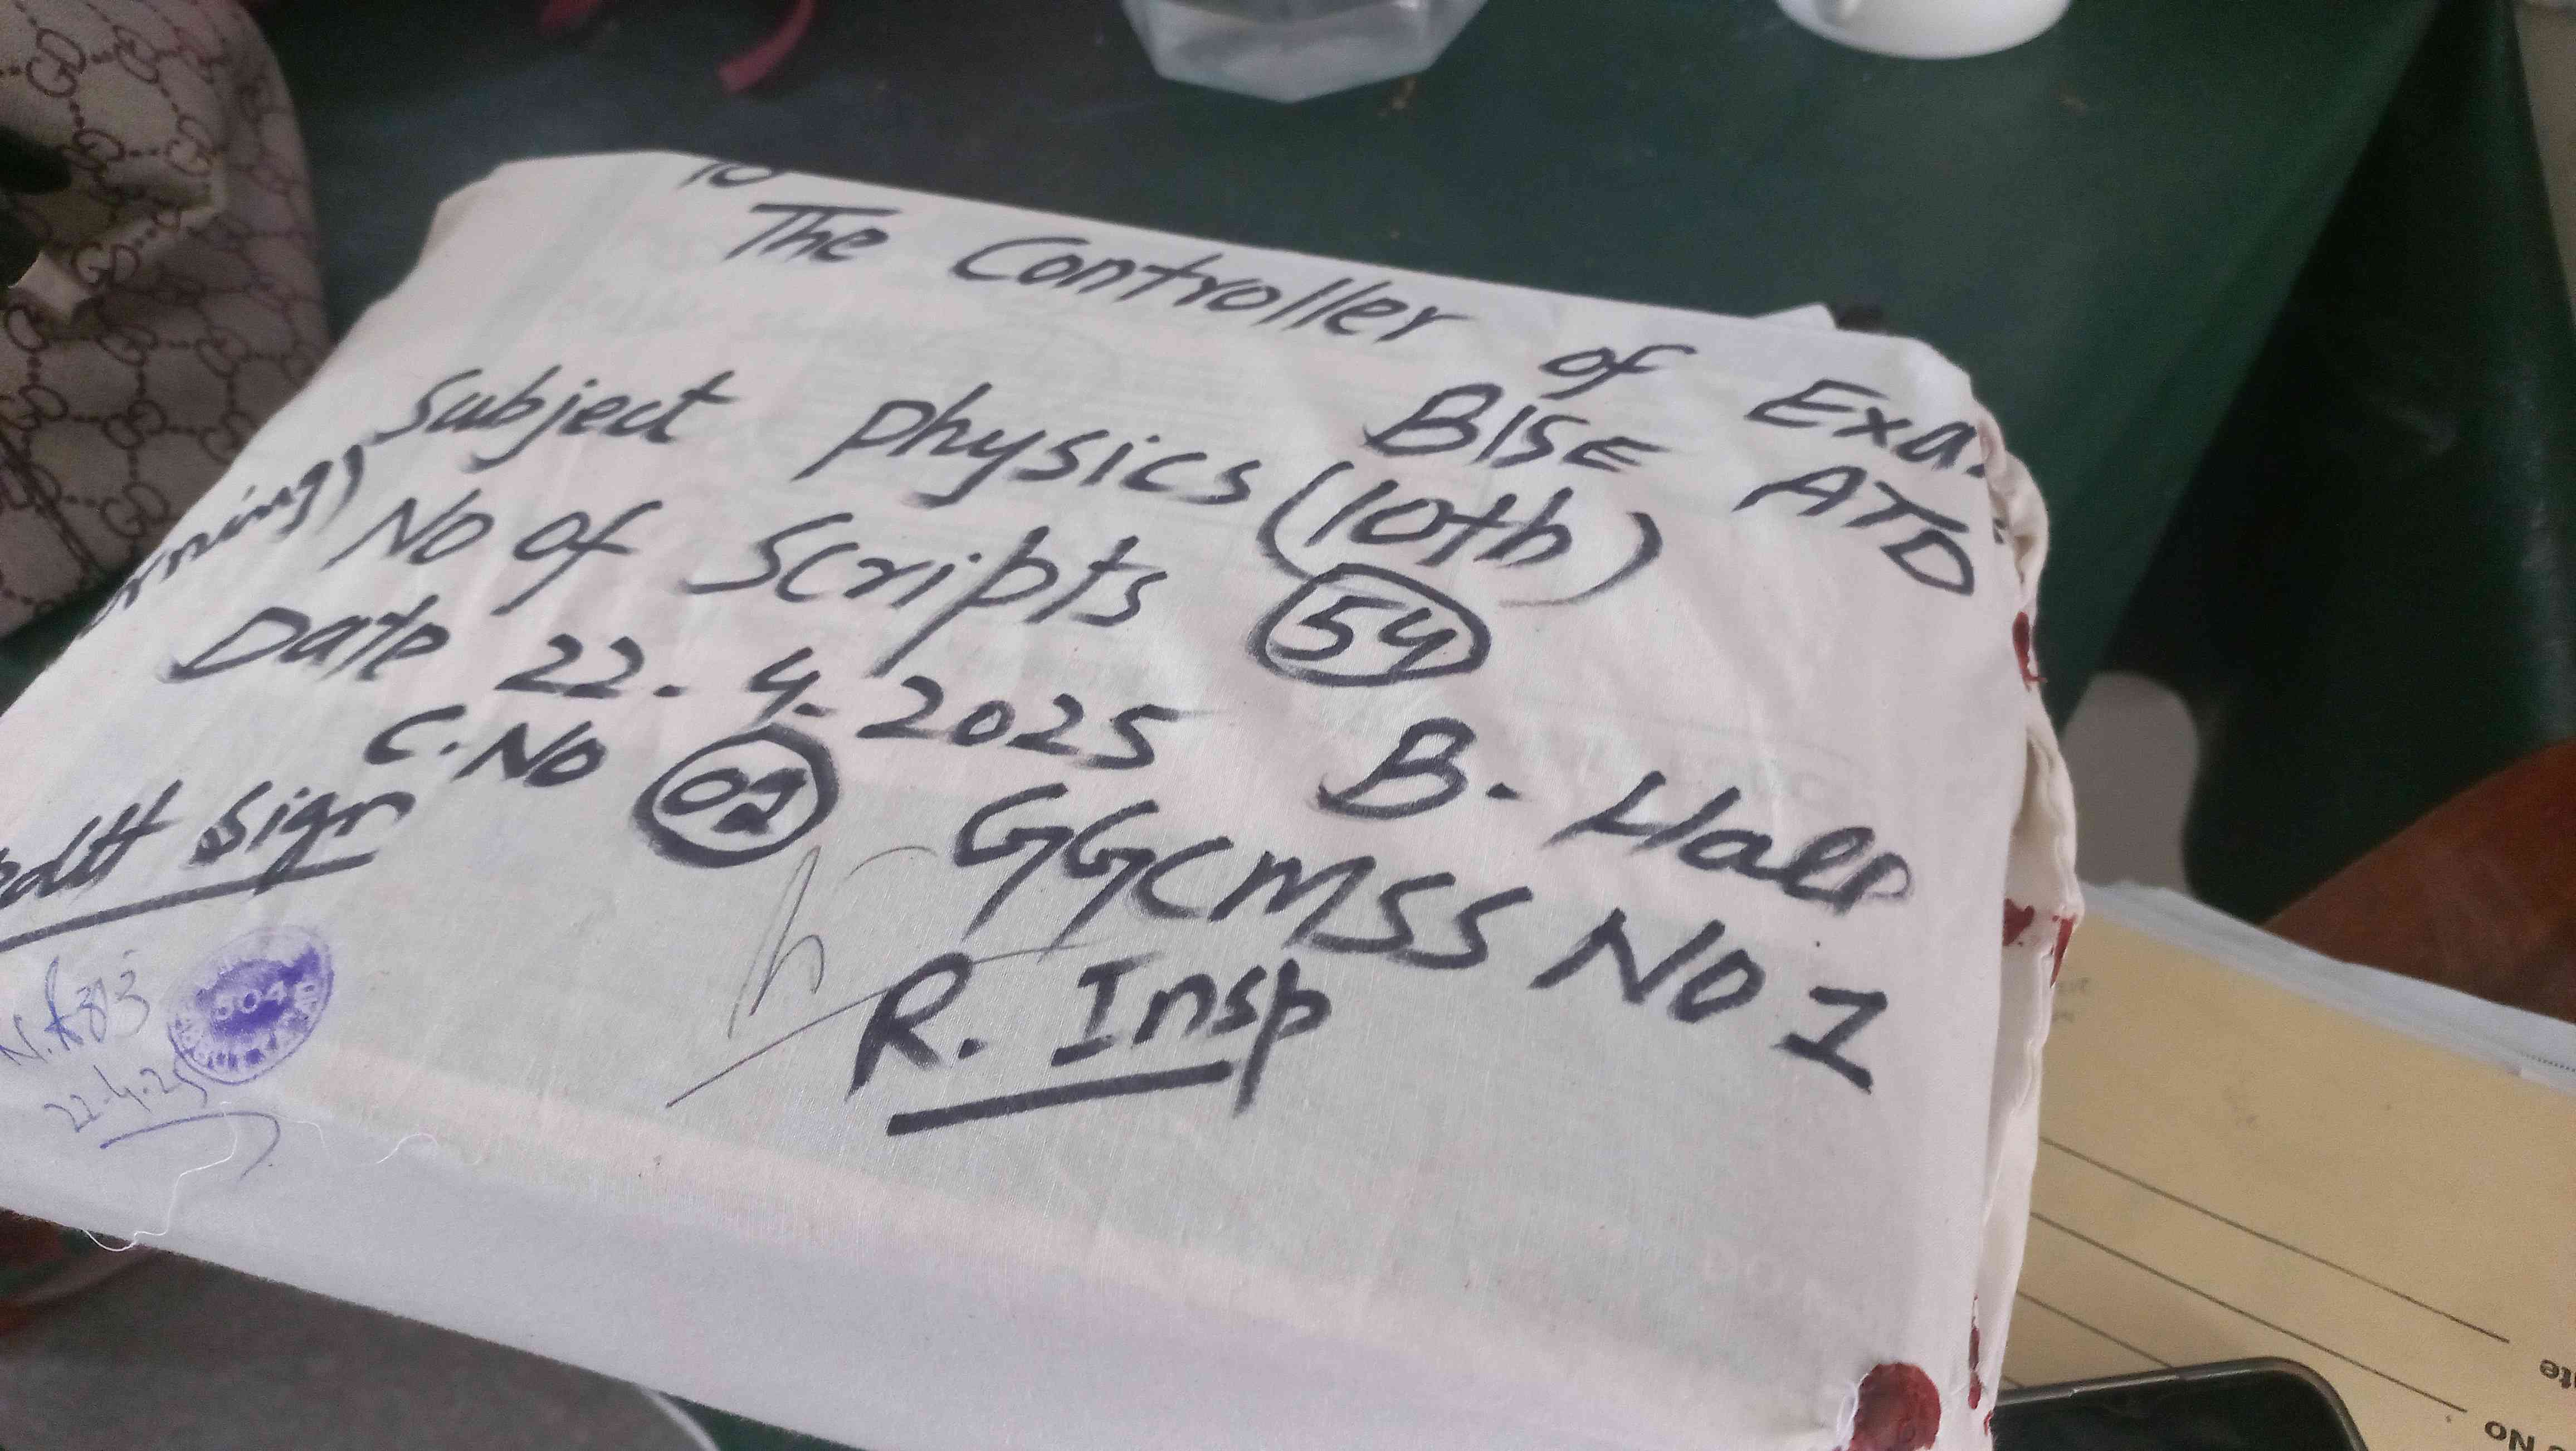 To
The Controller of Exa.
BISE ATD
Subject Physics (10th)
No of Scripts 54
Date 22.4.2025
C.No 02
B. Hall
GGCMSS NO 1
Sign
R. Insp
804
22-4-25
No